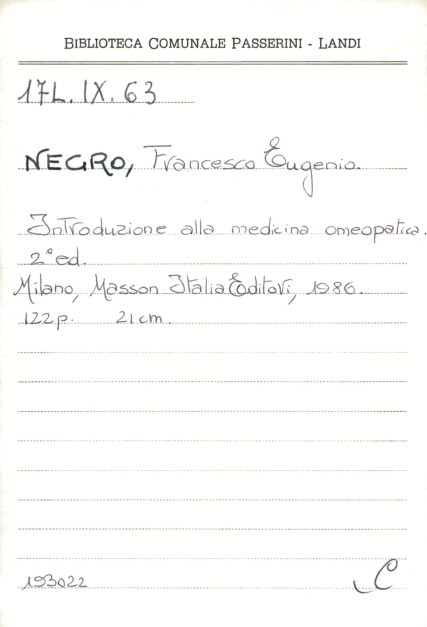 BIBLIOTECA COMUNALE PASSERINI - LANDI
17L. IX. 63
NEGRO, Francesco Eugenio.
Introduzione alla medicina omeopatica.
2ª ed.
Milano, Masson Italia Editori, 1986.
122 p. 21 cm.
193022 C